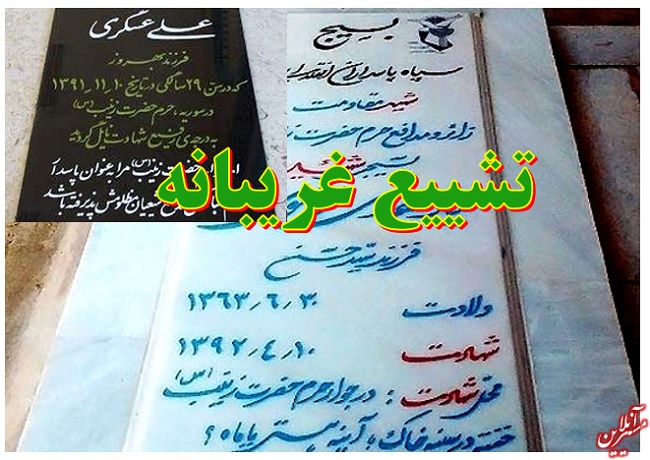 علی عسکری
فرزند بهروز
که در سن ۲۹ سالگی در تاریخ ۱۰_۱۱_۱۳۹۱
در سوریه، حرم حضرت زینب (س)
به درجه‌ی رفیع شهادت نائل گردید
حضرت زینب (س) مرا به عنوان پاسدار
شیعیان مظلومش پذیرفته باشد
بسیج
سپاه پاسداران انقلاب
شهید مقاومت
زائر و مدافع حرم حضرت
بسیجی شهید
تشییع غریبانه
فرزند سید حسن
ولادت ۱۳۶۳٫۶٫۳۰
شهادت ۱۳۹۲٫۴٫۱۰
محل شهادت: در جوار حرم حضرت زینب (س)
خفته در سینه خاک، آینه هستی یا ماه؟
آنلاین